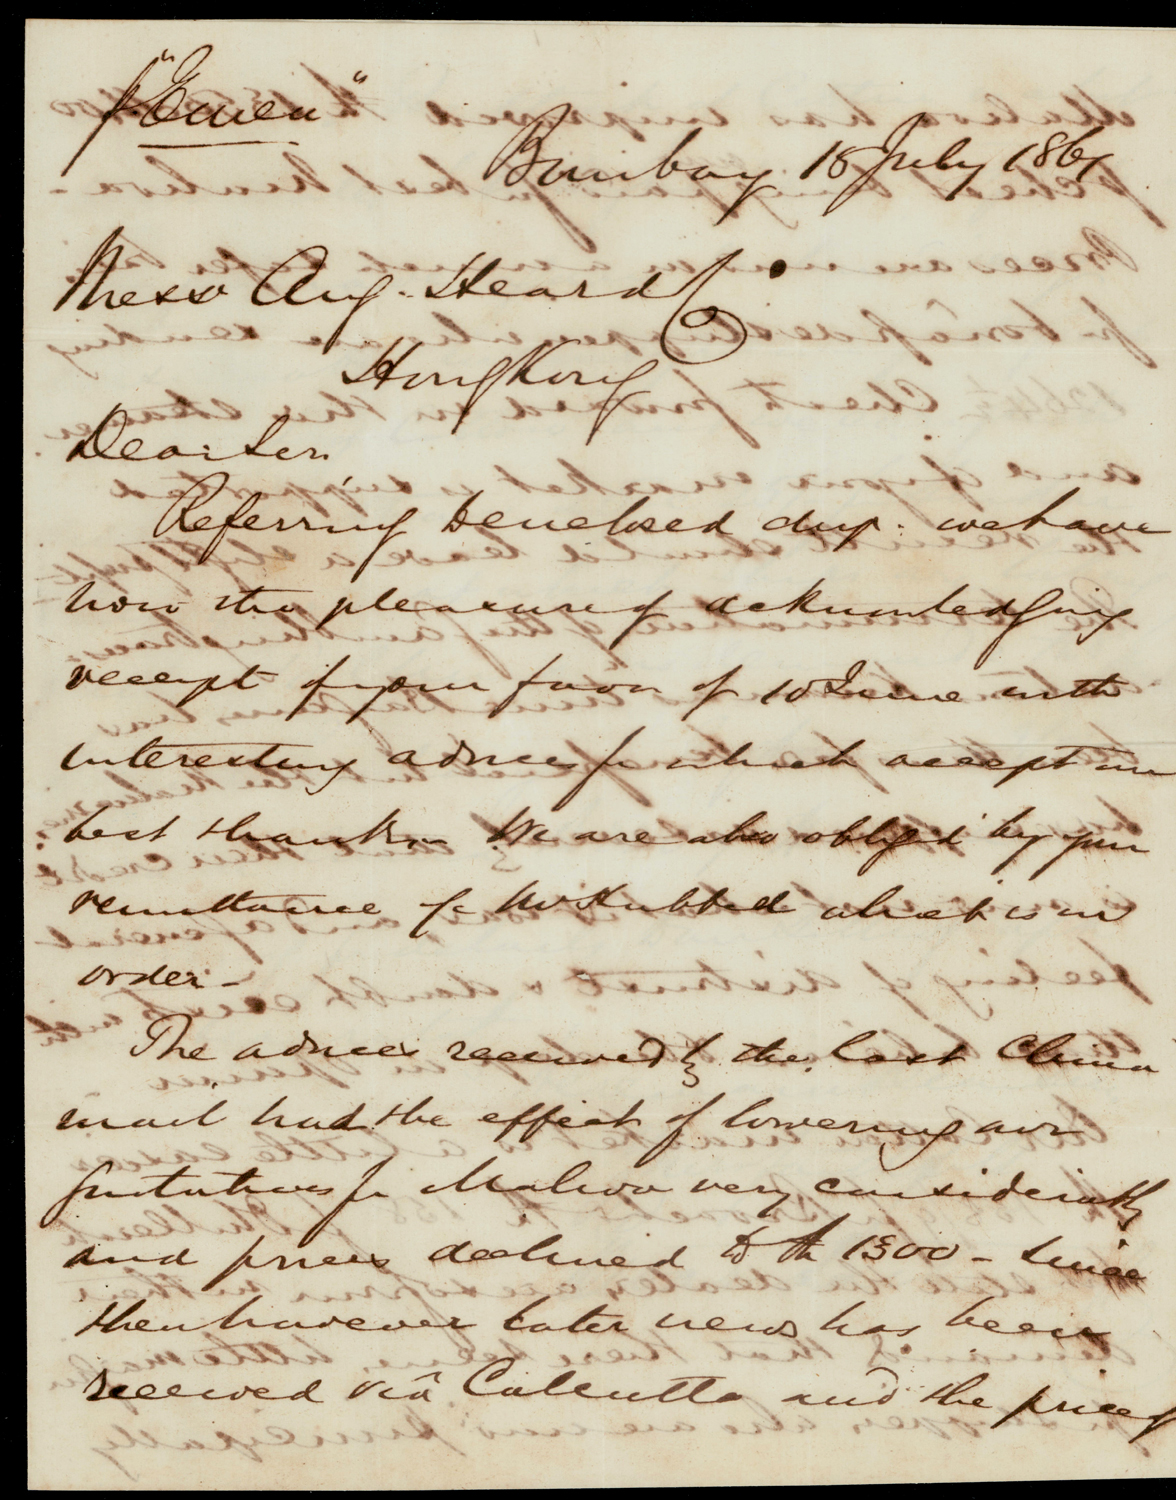 p "Emeu"
Bombay 18 July 1861
Messrs Aug. Heard & Co
HongKong
Dear Sirs
Referring to enclosed dup. we have
now the pleasure of acknowledging
receipt of your favor of 10 June with
interesting advices for which accept our
best thanks. We are also obliged by your
remittance fr which is in
order -
The advices received by the last China
mail had the effect of lowering our
quotations for Malwa very considerably
and prices declined to Rs 1300 - Since
then however later news has been
received viâ Calcutta and the price of